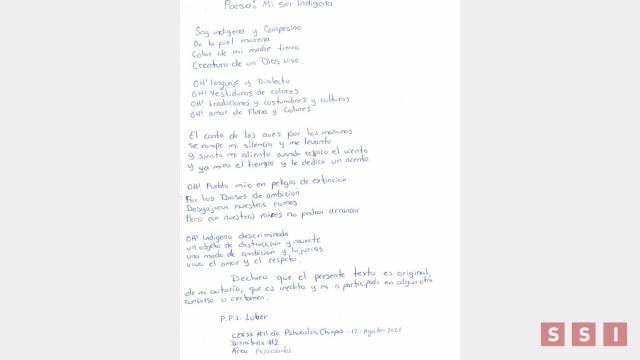 Poesia: Mi ser Indigena
Soy indigena y Campesino
De la piel morena
Color de mi madre tierra
Creatura de un Dios vivo.
OH! lenguaje y Dialecto
OH! Vestiduras de colores
OH! tradiciones y costumbres y culturas
OH! amor de Flora y Colores
El canto de las aves por las mañanas
Se rompe mi silencio y me levanto
y siento mi aliento cuando respiro el viento
y ya miro el tiempo y le dedico un acento
OH! Pueblo mio en peligro de extinción
Por los Dioses de ambicion
Desgajaron nuestras ramas
Pero con nuestras raices no podran arrancar
OH! Indigena descriminada
un objeto de destrucción y muerte
una moda de ambicion y lujurias
viva el amor y el respeto.
Declaro que el presente texto es original,
de mi autoria, que es inedito y no a participado en algun otro
concurso o certamen.
P.P.L. Luber
CERSS #11 de Pichucalco, Chiapas - 12 - Agosto - 2021
Dormitorio #2
Area
SSI